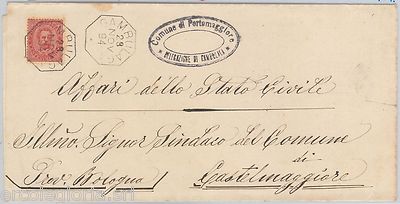 GAMBULAGA
28
NOV
94
Comune di Portomaggiore
DELEGAZIONE DI GAMBULAGA
Affari dello Stato Civile
Illmo. Signor Sindaco del Comune
di
Prov. Bologna
Castelmaggiore